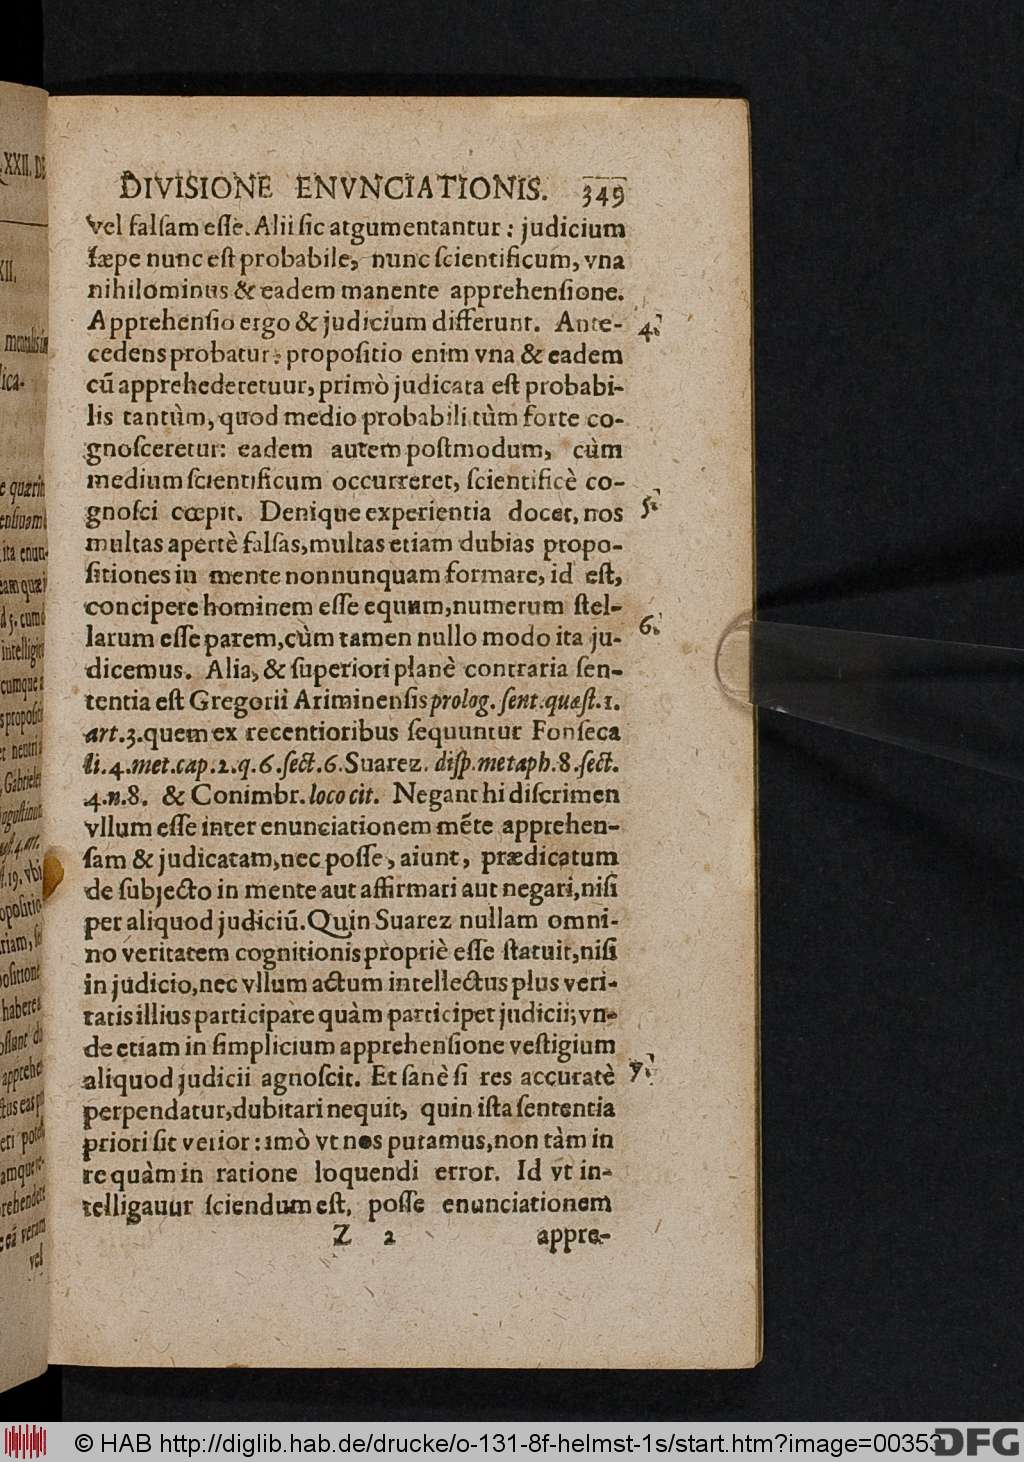 DIVISIONE ENVNCIATIONIS. 349
vel falſam eſſe. Alii ſic atgumentantur : judicium
ſæpe nunc eſt probabile, nunc ſcientificum, vna
nihilominus & eadem manente apprehenſione.
Apprehenſio ergo & judicium differunt. Ante- 4.
cedens probatur : propoſitio enim vna & eadem
cū apprehederetuur, primò judicata eſt probabi-
lis tantùm, quod medio probabili tùm forte co-
gnoſceretur: eadem autem poſtmodum, cùm
medium ſcientificum occurreret, ſcientificè co-
gnoſci cœpit. Denique experientia docet, nos 5.
multas apertè falſas, multas etiam dubias propo-
ſitiones in mente nonnunquam formare, id eſt,
concipere hominem eſſe equum, numerum ſtel-
larum eſſe parem, cùm tamen nullo modo ita ju- 6.
dicemus. Alia, & ſuperiori planè contraria ſen-
tentia eſt Gregorii Ariminenſis prolog. ſent. quæſt. 1.
art. 3. quem ex recentioribus ſequuntur Fonſeca
li. 4. met. cap. 2. q. 6. ſect. 6. Suarez. diſp. metaph. 8. ſect.
4. n. 8. & Conimbr. loco cit. Negant hi diſcrimen
vllum eſſe inter enunciationem mēte apprehen-
ſam & judicatam, nec poſſe, aiunt, prædicatum
de ſubjecto in mente aut affirmari aut negari, niſi
per aliquod judiciū. Quin Suarez nullam omni-
no veritatem cognitionis propriè eſſe ſtatuit, niſi
in judicio, nec vllum actum intellectus plus veri-
tatis illius participare quàm participet judicii; vn-
de etiam in ſimplicium apprehenſione veſtigium
aliquod judicii agnoſcit. Et ſanè ſi res accuratè 7.
perpendatur, dubitari nequit, quin iſta ſententia
priori ſit verior : imò vt nos putamus, non tàm in
re quàm in ratione loquendi error. Id vt in-
telligauur ſciendum eſt, poſſe enunciationem
Z 2 appre-
© HAB http://diglib.hab.de/drucke/o-131-8f-helmst-1s/start.htm?image=00353
DFG